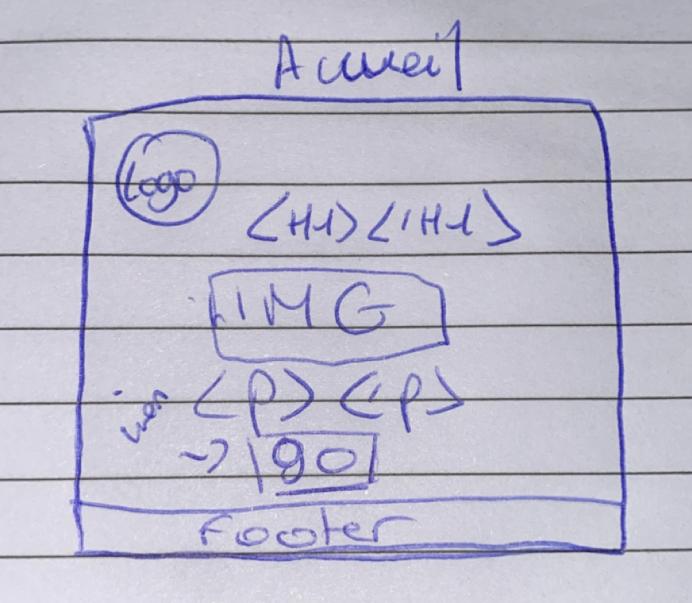 Accueil
Logo
<H1></H1>
IMG
<p></p>
→ go
Footer